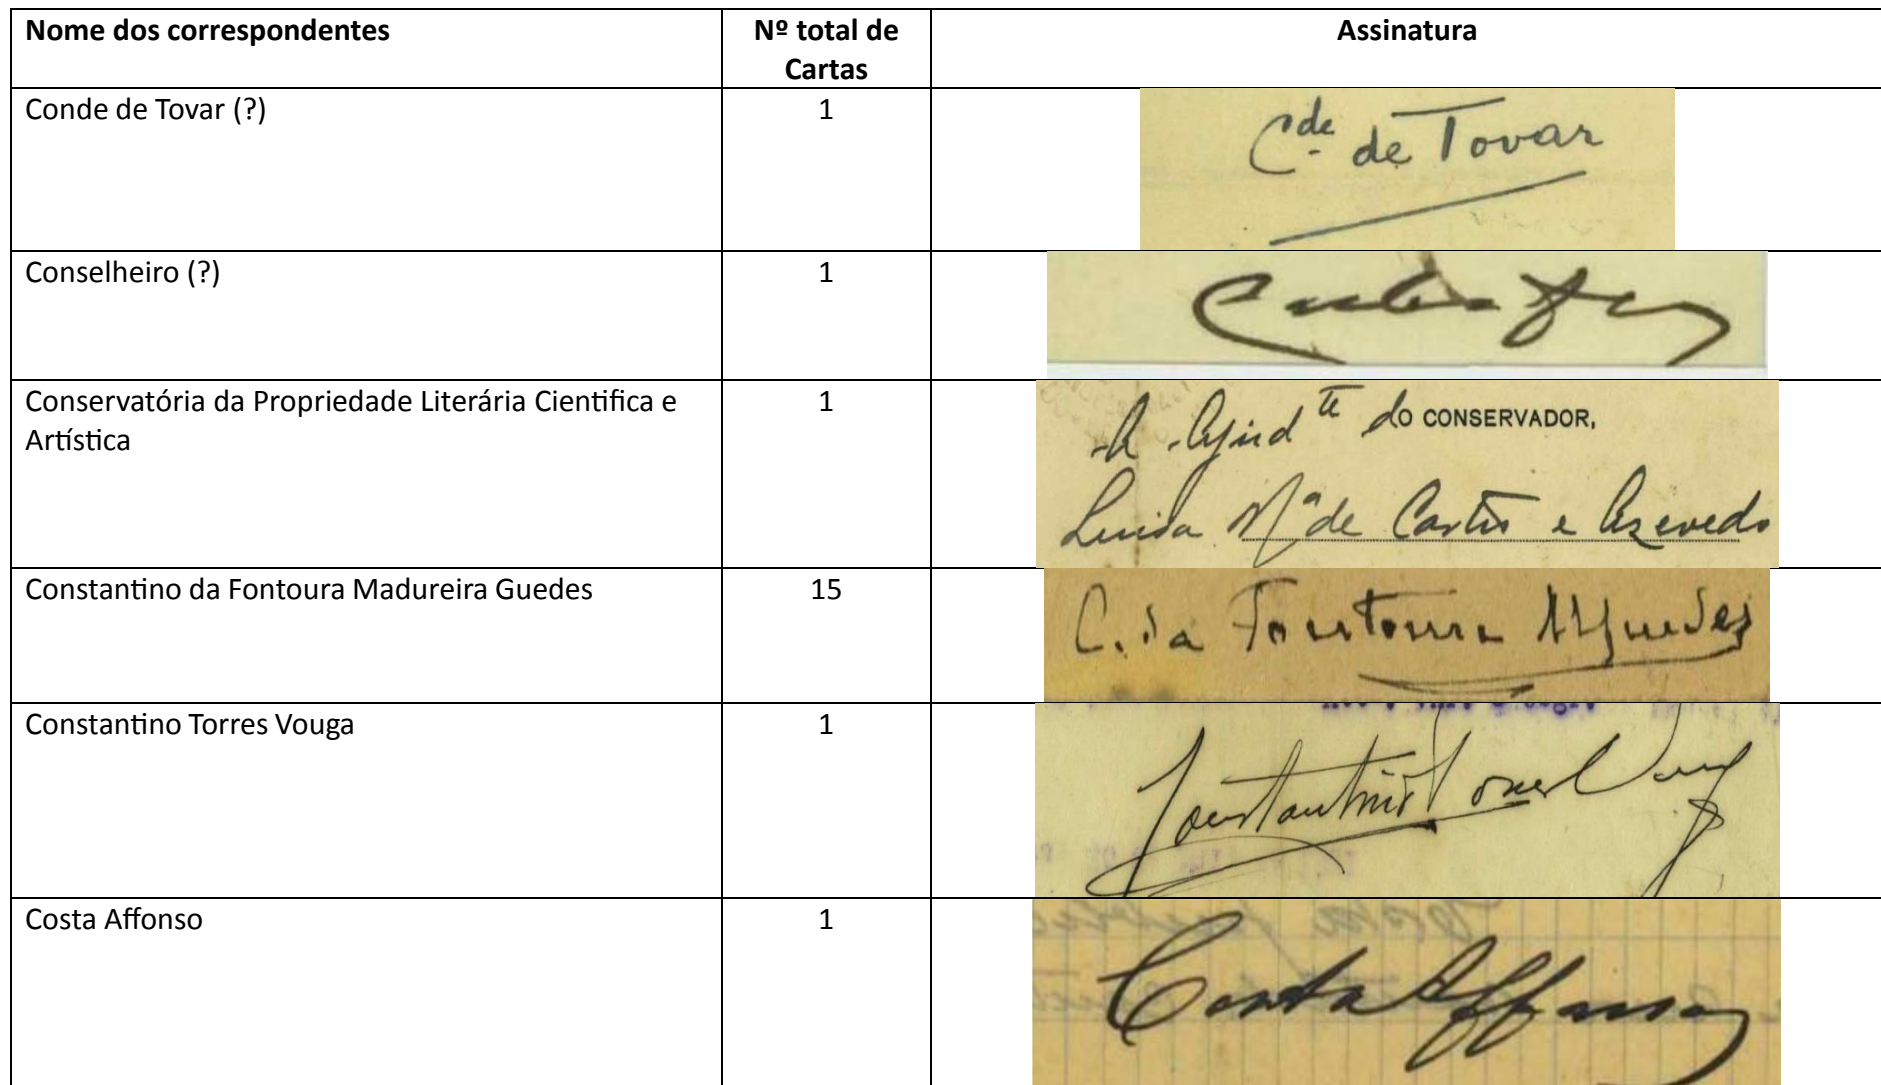 Nome dos correspondentes
Nº total de Cartas
Assinatura
Conde de Tovar (?)
1
Cde de Tovar
Conselheiro (?)
1
Conservatória da Propriedade Literária Cientifica e
Artística
1
A Ajudte do CONSERVADOR,
Luisa Mª de Castro e Azevedo
Constantino da Fontoura Madureira Guedes
15
C. da Fontoura MGuedes
Constantino Torres Vouga
1
Constantino Torres Vouga
Costa Affonso
1
Costa Affonso